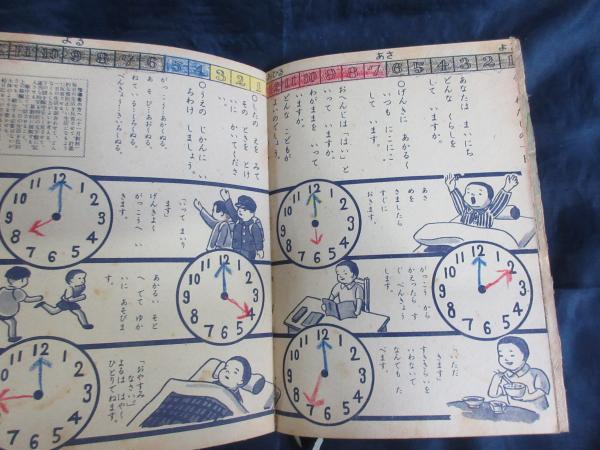 よる
あさ
よ
11 10 9 8 7 6 5 4 3 2 1
12 11 10 9 8 7 6 5 4 3 2 1
あなたは まいにち
どんな くらしを
して いますか。
○げんきに あかるく
いつも にこにこ
して います。
おへんじは「はい」と
いって いますか。
わがままを いって
どんな こどもが
よいのでしょう。
あさ
めを
さましたら
すぐに
おきます。
12 1 2 3 4 5 6 7 8 9 10 11
がっこう から
かえったら す
ぐ べんきょう
します。
12 1 2 3 4 5 6 7 8 9 10 11
「いただ
きます」
すききらいを
いわないで
なんでも た
べます。
12 1 2 3 4 5 6 7 8 9 10 11
○したの えを みて
その ときを とけ
いに かいて くださ
い。
○うえの じかんに い
ろわけ しましょう。
がっこう―あかくぬる。
あ そ び―あおくぬる。
ねて いる―くろくぬる。
べんきょう―きいろくぬる。
「いって まいり
ます」
げんきよく
がっこうへ い
きます。
12 1 2 3 4 5 6 7 8 9 10 11
あかるい そと
へ でて ゆか
いに あそびま
す。
12 1 2 3 4 5 6 7 8 9 10 11
「おやすみ
なさい」
よるは はやく
ひとりでねます。
12 1 2 3 4 5 6